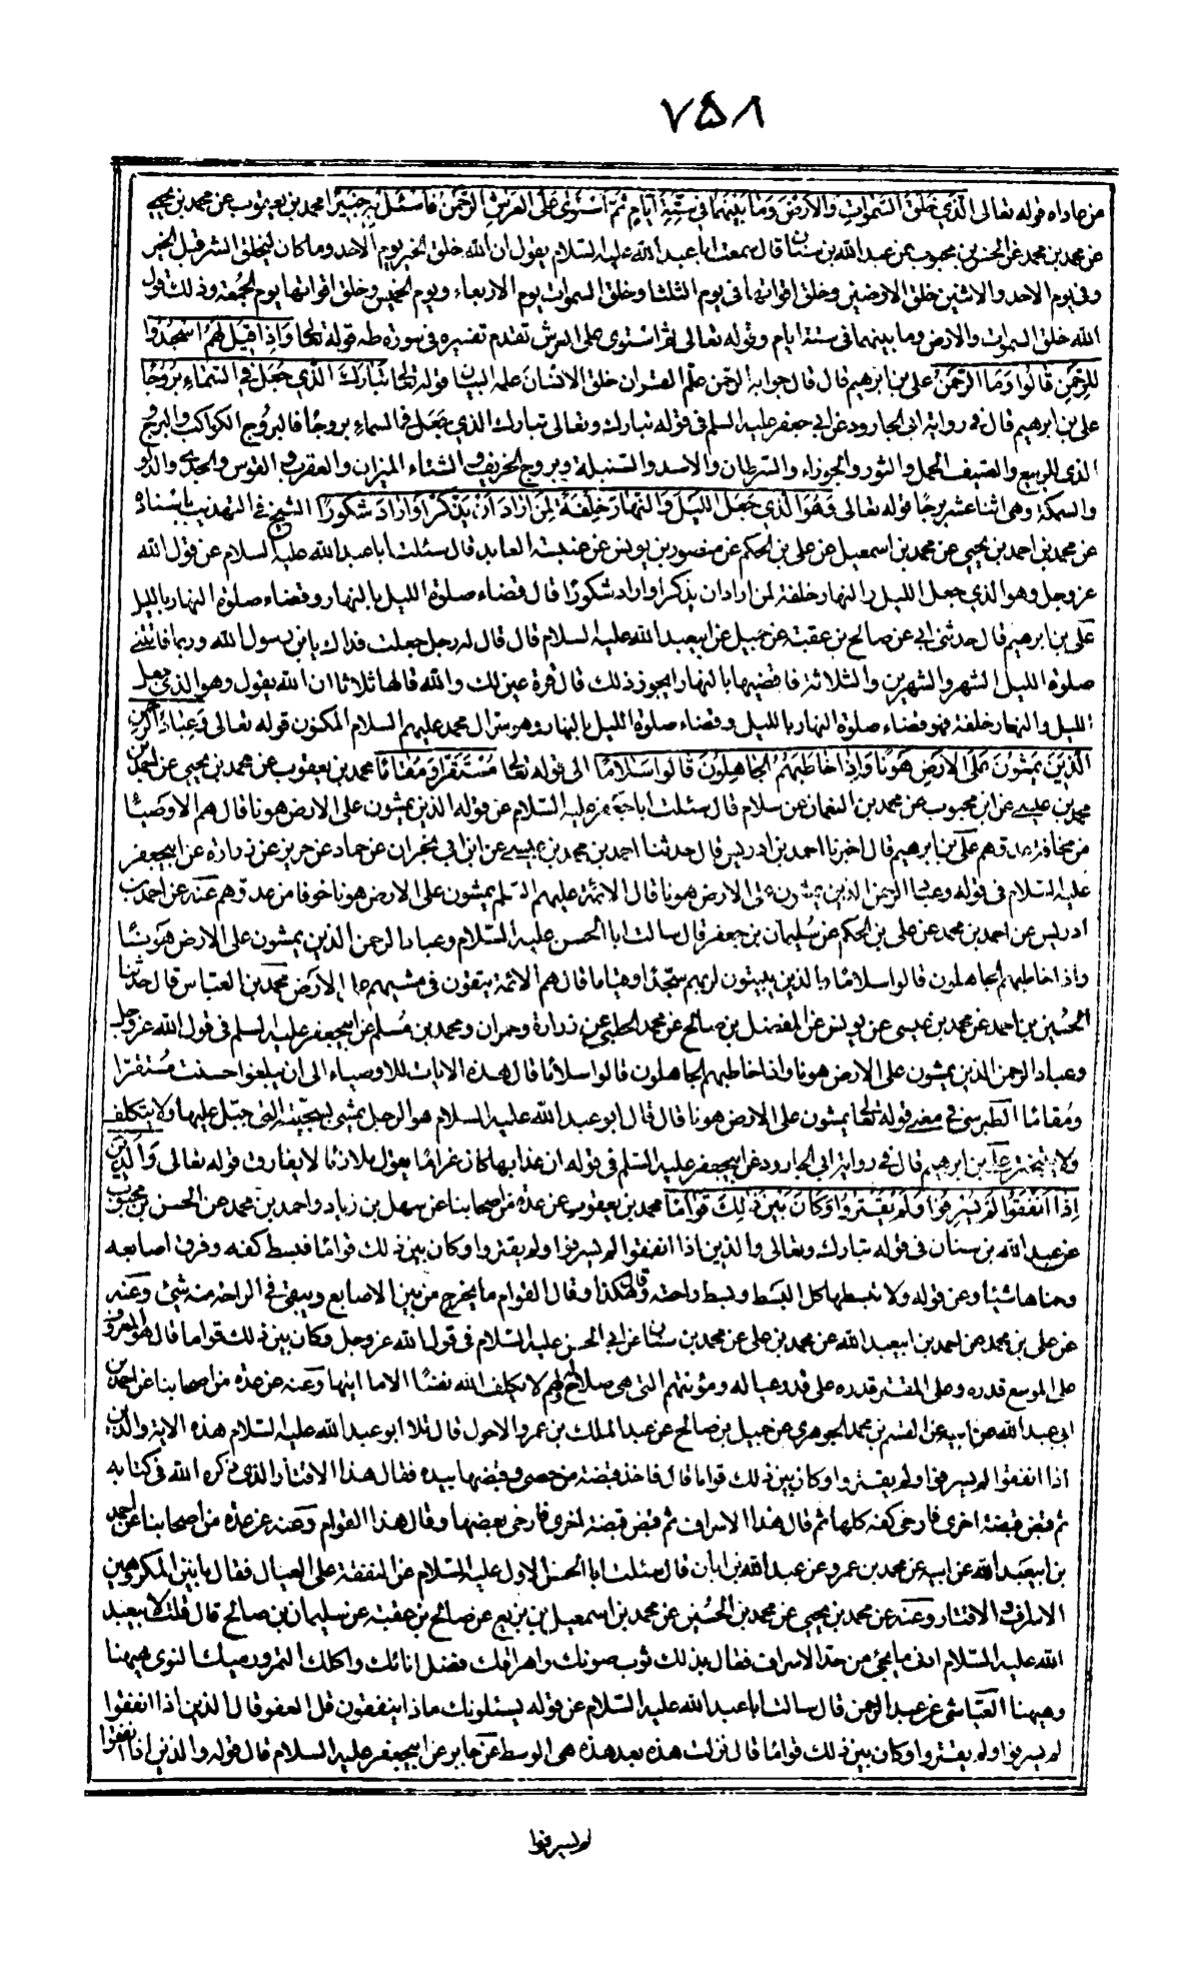 ٧٥٨
من عاداه قوله تعالى الَّذي خَلَقَ السَّمواتِ وَالاَرْضَ وَمَا بَيْنَهُما في سِتَّةِ اَيّامٍ ثُمَّ اسْتَوى عَلَى الْعَرْشِ الرَّحْمنُ فَاسْئَلْ بِهِ خَبيرًا محمد بن يعقوب عن محمد بن يحيى
عن محمد بن محمد عن الحسن بن محبوب عن عبد الله بن سنان قال سمعت ابا عبد الله عليه السلام يقول ان الله خلق الخير يوم الاحد وما كان ليخلق الشر قبل الخير
وفي يوم الاحد والاثنين خلق الارضين وخلق اقواتها في يوم الثلثا وخلق السموات يوم الاربعاء ويوم الخميس وخلق اقواتها يوم الجمعة وذلك قول
الله خلق السموات والارض وما بينهما في ستة ايام وقوله تعالى ثم استوى على العرش تقدم تفسيره في سورة طه قوله تعالى وَاِذا قيلَ لَهُمُ اسْجُدُوا
لِلرَّحْمنِ قالُوا وَمَا الرَّحْمنُ علي بن ابرهيم قال قال جوابه الرحمن علم القران خلق الانسان علمه البيان قوله تعالى تَبارَكَ الَّذي جَعَلَ فِي السَّماءِ بُرُوجًا
علي بن ابرهيم قال في رواية ابي الجارود عن ابي جعفر عليه السلم في قوله تبارك وتعالى تبارك الذي جعل في السماء بروجا فالبروج الكواكب والبروج
الذي للربيع والصيف الحمل والثور والجوزاء والسرطان والاسد والسنبلة وبروج الخريف والشتاء الميزان والعقرب والقوس والجدي والدلو
والسمكة وهي اثنا عشر برجا قوله تعالى وَهُوَ الَّذي جَعَلَ اللَّيْلَ وَالنَّهارَ خِلْفَةً لِمَنْ اَرادَ اَنْ يَذَّكَّرَ اَوْ اَرادَ شُكُورًا الشيخ في التهذيب باسناده
عن محمد بن احمد بن يحيى عن محمد بن اسمعيل عن علي بن الحكم عن منصور بن يونس عن عنبسة العابد قال سئلت ابا عبد الله عليه السلام عن قول الله
عز وجل وهو الذي جعل الليل والنهار خلفة لمن اراد ان يذكر او اراد شكورا قال قضاء صلوة الليل بالنهار وقضاء صلوة النهار بالليل
علي بن ابرهيم قال حدثني ابي عن صالح بن عقبة عن جميل عن ابيعبد الله عليه السلام قال قال له رجل جعلت فداك يابن رسول الله وربما فاتتني
صلوة الليل الشهر والشهرين والثلاثة فاقضيها بالنهار ايجوز ذلك قال قرة عين لك والله قالها ثلاثا ان الله يقول وهو الذي جعل
الليل والنهار خلفة فهو قضاء صلوة النهار بالليل وقضاء صلوة الليل بالنهار وهو من سر ال محمد عليهم السلام المكنون قوله تعالى وَعِبادُ الرَّحْمنِ
الَّذينَ يَمْشُونَ عَلَى الْاَرْضِ هَوْنًا وَاِذا خاطَبَهُمُ الْجاهِلُونَ قالُوا سَلامًا الى قوله تعالى مُسْتَقَرًّا وَمُقامًا محمد بن يعقوب عن محمد بن يحيى عن احمد بن
محمد بن عيسى عن ابن محبوب عن محمد بن النعمان عن سلام قال سئلت ابا جعفر عليه السلام عن قوله الذين يمشون على الارض هونا قال هم الاوصياء
من مخافة عدوهم علي بن ابرهيم قال اخبرنا احمد بن ادريس قال حدثنا احمد بن محمد بن عيسى عن ابن ابي نجران عن حماد عن حريز عن زرارة عن ابيجعفر
عليه السلام في قوله وعباد الرحمن الذين يمشون على الارض هونا قال الائمة عليهم السلم يمشون على الارض هونا خوفا من عدوهم عنه عن احمد بن
ادريس عن احمد بن محمد عن علي بن الحكم عن سليمان بن جعفر قال سالت ابا الحسن عليه السلام وعباد الرحمن الذين يمشون على الارض هونا
واذا خاطبهم الجاهلون قالوا سلاما والذين يبيتون لربهم سجدا وقياما قال هم الائمة يتقون في مشيهم على الارض محمد بن العباس قال حدثنا
الحسين بن احمد عن محمد بن عيسى عن يونس عن المفضل بن صالح عن محمد الحلبي عن زرارة وحمران ومحمد بن مسلم عن ابيجعفر عليه السلم في قول الله عز وجل
وعباد الرحمن الذين يمشون على الارض هونا واذا خاطبهم الجاهلون قالوا سلاما قال هذه الايات للاوصياء الى ان يبلغوا حسنت مستقرا
ومقاما الطبرسي في معنى قوله تعالى يمشون على الارض هونا قال قال ابو عبد الله عليه السلام هو الرجل يمشي بسجيته التي جبل عليها ولا يتكلف
ولا يتبختر علي بن ابرهيم قال في رواية ابي الجارود عن ابيجعفر عليه السلم في قوله ان عذابها كان غراما يقول ملازما لا يفارق قوله تعالى وَالَّذينَ
اِذا اَنْفَقُوا لَمْ يُسْرِفُوا وَلَمْ يَقْتُرُوا وَكانَ بَيْنَ ذلِكَ قَوامًا محمد بن يعقوب عن عدة من اصحابنا عن سهل بن زياد واحمد بن محمد عن الحسن بن محبوب
عن عبد الله بن سنان في قوله تبارك وتعالى والذين اذا انفقوا لم يسرفوا ولم يقتروا وكان بين ذلك قواما فبسط كفه وفرق اصابعه
وحناها شيئا وعن قوله ولا تبسطها كل البسط وبسط راحته وقال هكذا وقال القوام ما يخرج من بين الاصابع ويبقى في الراحة منه شئ وعنه
عن علي بن محمد عن احمد بن ابيعبد الله عن محمد بن علي عن محمد بن سنان عن ابي الحسن عليه السلام في قول الله عز وجل وكان بين ذلك قواما قال هو المعروف
على الموسع قدره وعلى المقتر قدره على قدر عياله ومؤنتهم التي هي صلاح له ولهم لا يكلف الله نفسا الا ما اتيها وعنه عن عدة من اصحابنا عن احمد بن
ابي عبد الله عن ابيه عن القسم بن محمد الجوهري عن جميل بن صالح عن عبد الملك بن عمرو الاحول قال تلا ابو عبد الله عليه السلام هذه الاية والذين
اذا انفقوا لم يسرفوا ولم يقتروا وكان بين ذلك قواما قال فاخذ قبضة من حصى وقبضها بيده فقال هذا الاقتار الذي ذكره الله في كتابه
ثم قبض قبضة اخرى فارخى كفه كلها ثم قال هذا الاسراف ثم قبض قبضة اخرى فارخى بعضها وقال هذا القوام وعنه عن عدة من اصحابنا عن احمد
بن ابيعبد الله عن ابيه عن محمد بن عمرو عن عبد الله بن ابان قال سئلت ابا الحسن الاول عليه السلام عن النفقة على العيال فقال ما بين المكروهين
الاسراف والاقتار وعنه عن محمد بن يحيى عن محمد بن الحسين عن محمد بن اسمعيل بن بزيع عن صالح بن عقبة عن سليمان بن صالح قال قلت لابيعبد
الله عليه السلام ادنى ما يجئ من حد الاسراف فقال بذلك ثوب صونك واهراقك فضل انائك واكلك التمر ورميك النوى هيهنا
وهيهنا العياشي عن عبد الرحمن قال سالت ابا عبد الله عليه السلام عن قوله يسئلونك ماذا ينفقون قل العفو قال الذين اذا انفقوا
لم يسرفوا ولم يقتروا وكان بين ذلك قواما قال نزلت هذه بعد هذه هي الوسط عن جابر عن ابيجعفر عليه السلام قال قوله والذين اذا انفقوا
لم يسرفوا